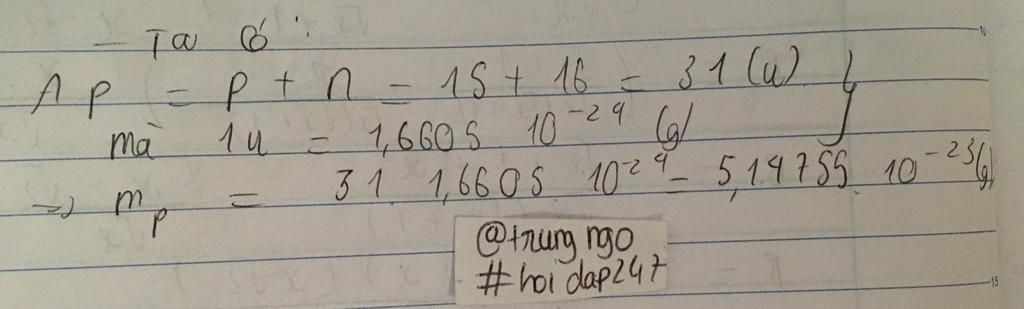 - Ta có :
Ap = p + n = 15 + 16 = 31 (u)
mà 1u = 1,6605 10⁻²⁴ (g)
→ mp = 31 1,6605 10⁻²⁴ = 5,14755 10⁻²³ (g)
@trung ngo
# hoi dap247
10
15